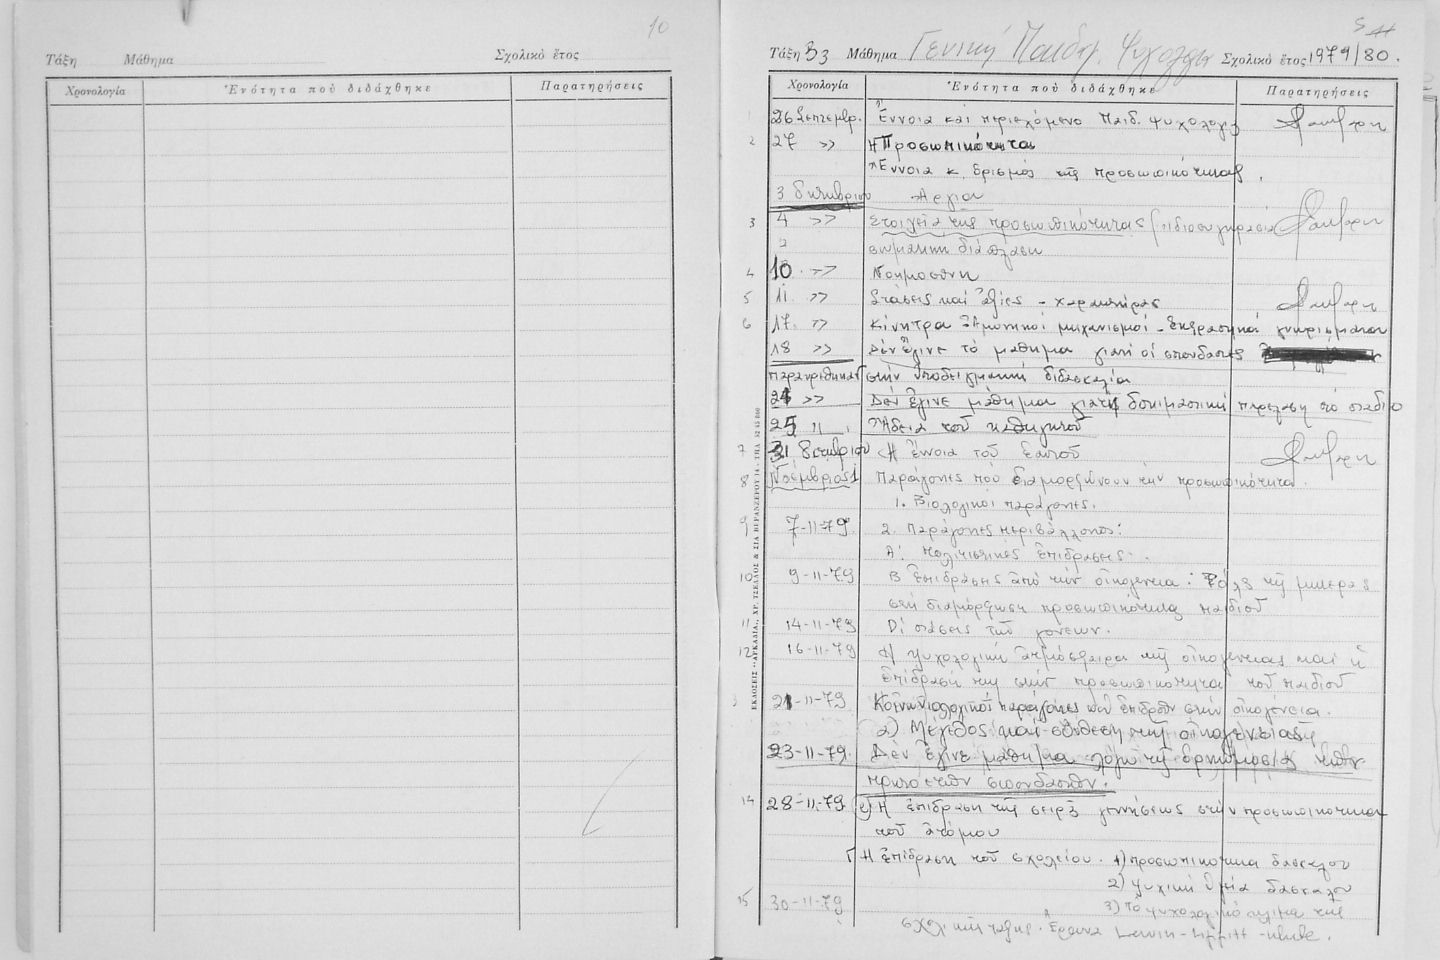 10
Τάξη Μάθημα Σχολικὸ ἔτος
Χρονολογία Ἑνότητα ποὺ διδάχθηκε Παρατηρήσεις
5
Τάξη Β3 Μάθημα Γενική Παιδαγ. Ψυχολογία Σχολικὸ ἔτος 1979/80.
Χρονολογία Ἑνότητα ποὺ διδάχθηκε Παρατηρήσεις
1 26 Σεπτεμβρ. Ἔννοια καί περιεχόμενο Παιδ. Ψυχολογίας
2 27 >> Ἡ Προσωπικότητα
Ἔννοια κ. ὁρισμός τῆς προσωπικότητας.
3 Ὀκτωβρίου Ἀργία
3 4 >> Στοιχεῖα τῆς προσωπικότητας (ἰδιοσυγκρασία
σωματική διάπλαση
4 10 >> Νοημοσύνη
5 11 >> Στάσεις καί ἀξίες - χαρακτήρας
6 17 >> Κίνητρα Ἀμυντικοί μηχανισμοί - Ἐκφραστικά γνωρίσματα
18 >> Δέν ἔγινε τό μάθημα γιατί οἱ σπουδαστές
παρευρέθηκαν στήν ὑποδειγματική διδασκαλία
24 >> Δέν ἔγινε μάθημα γιατί δοκιμαστική παρέλαση στό στάδιο
25 11 Ἄδεια τοῦ καθηγητοῦ
7 31 Ὀκτωβρίου Ἡ ἔννοια τοῦ ἑαυτοῦ
8 Νοέμβριος 1 Παράγοντες πού διαμορφώνουν τήν προσωπικότητα.
1. Βιολογικοί παράγοντες.
9 7-11-79 2. Παράγοντες περιβάλλοντος:
Α! Πολιτιστικές ἐπιδράσεις.
10 9-11-79 Β Ἐπιδράσεις ἀπό τήν οἰκογένεια: Ρόλος τῆς μητέρας
στή διαμόρφωση προσωπικότητας παιδιοῦ
11 14-11-79 Οἱ στάσεις τῶν γονέων.
12 16-11-79 Ἡ ψυχολογική ἀτμόσφαιρα τῆς οἰκογένειας καί ἡ
ἐπίδρασή της στήν προσωπικότητα τοῦ παιδιοῦ
3 21-11-79 Κοινωνιολογικοί παράγοντες πού ἐπιδροῦν στήν οἰκογένεια.
2) Μέγεθος καί σύνθεση τῆς οἰκογένειας
23-11-79. Δέν ἔγινε μάθημα λόγω τῆς ὁρκωμοσίας τῶν
πρωτοετῶν σπουδαστῶν.
14 28-11-79 Ἡ ἐπίδραση τῆς σειρᾶς γεννήσεως στήν προσωπικότητα
τοῦ ἀτόμου
Γ Ἡ ἐπίδραση τοῦ σχολείου. 1) προσωπικότητα δασκάλου
2) ψυχική ὑγεία δασκάλου
15 30-11-79 3) Τό ψυχολογικό κλίμα τῆς
σχολικῆς τάξης. Ἔρευνα Lewin - Lippitt - White.
ΕΚΔΟΣΕΙΣ "ΑΡΚΑΔΙΑ", ΧΡ. ΤΣΕΛΛΟΣ & ΣΙΑ ΒΕΡΑΝΖΕΡΟΥ 14 - ΤΗΛ.